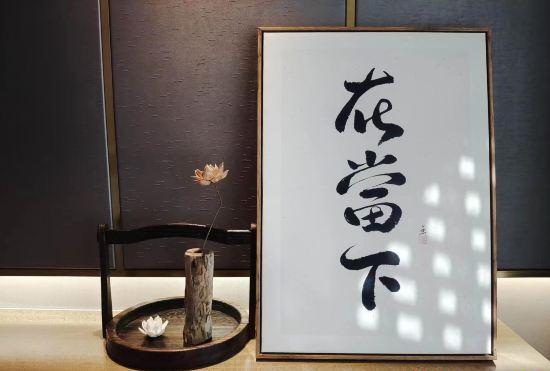 在
當
下